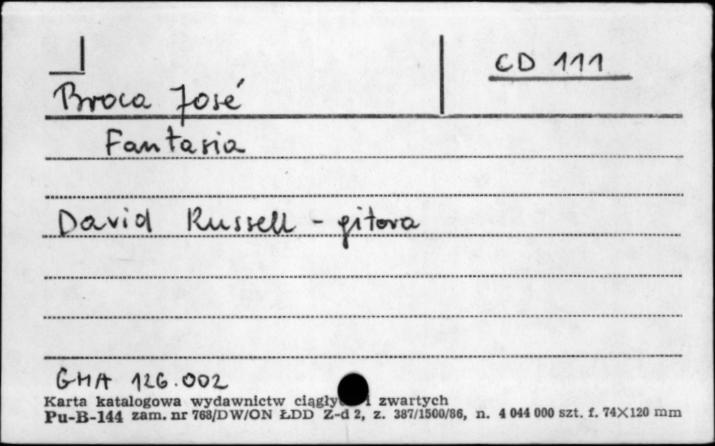 CD 111
Broca José
Fantasia
David Russell - gitara
GHA 126.002
Karta katalogowa wydawnictw ciągły i zwartych
Pu-B-144 zam. nr 768/DW/ON ŁDD Z-d 2, z. 387/1500/86, n. 4 044 000 szt. f. 74×120 mm